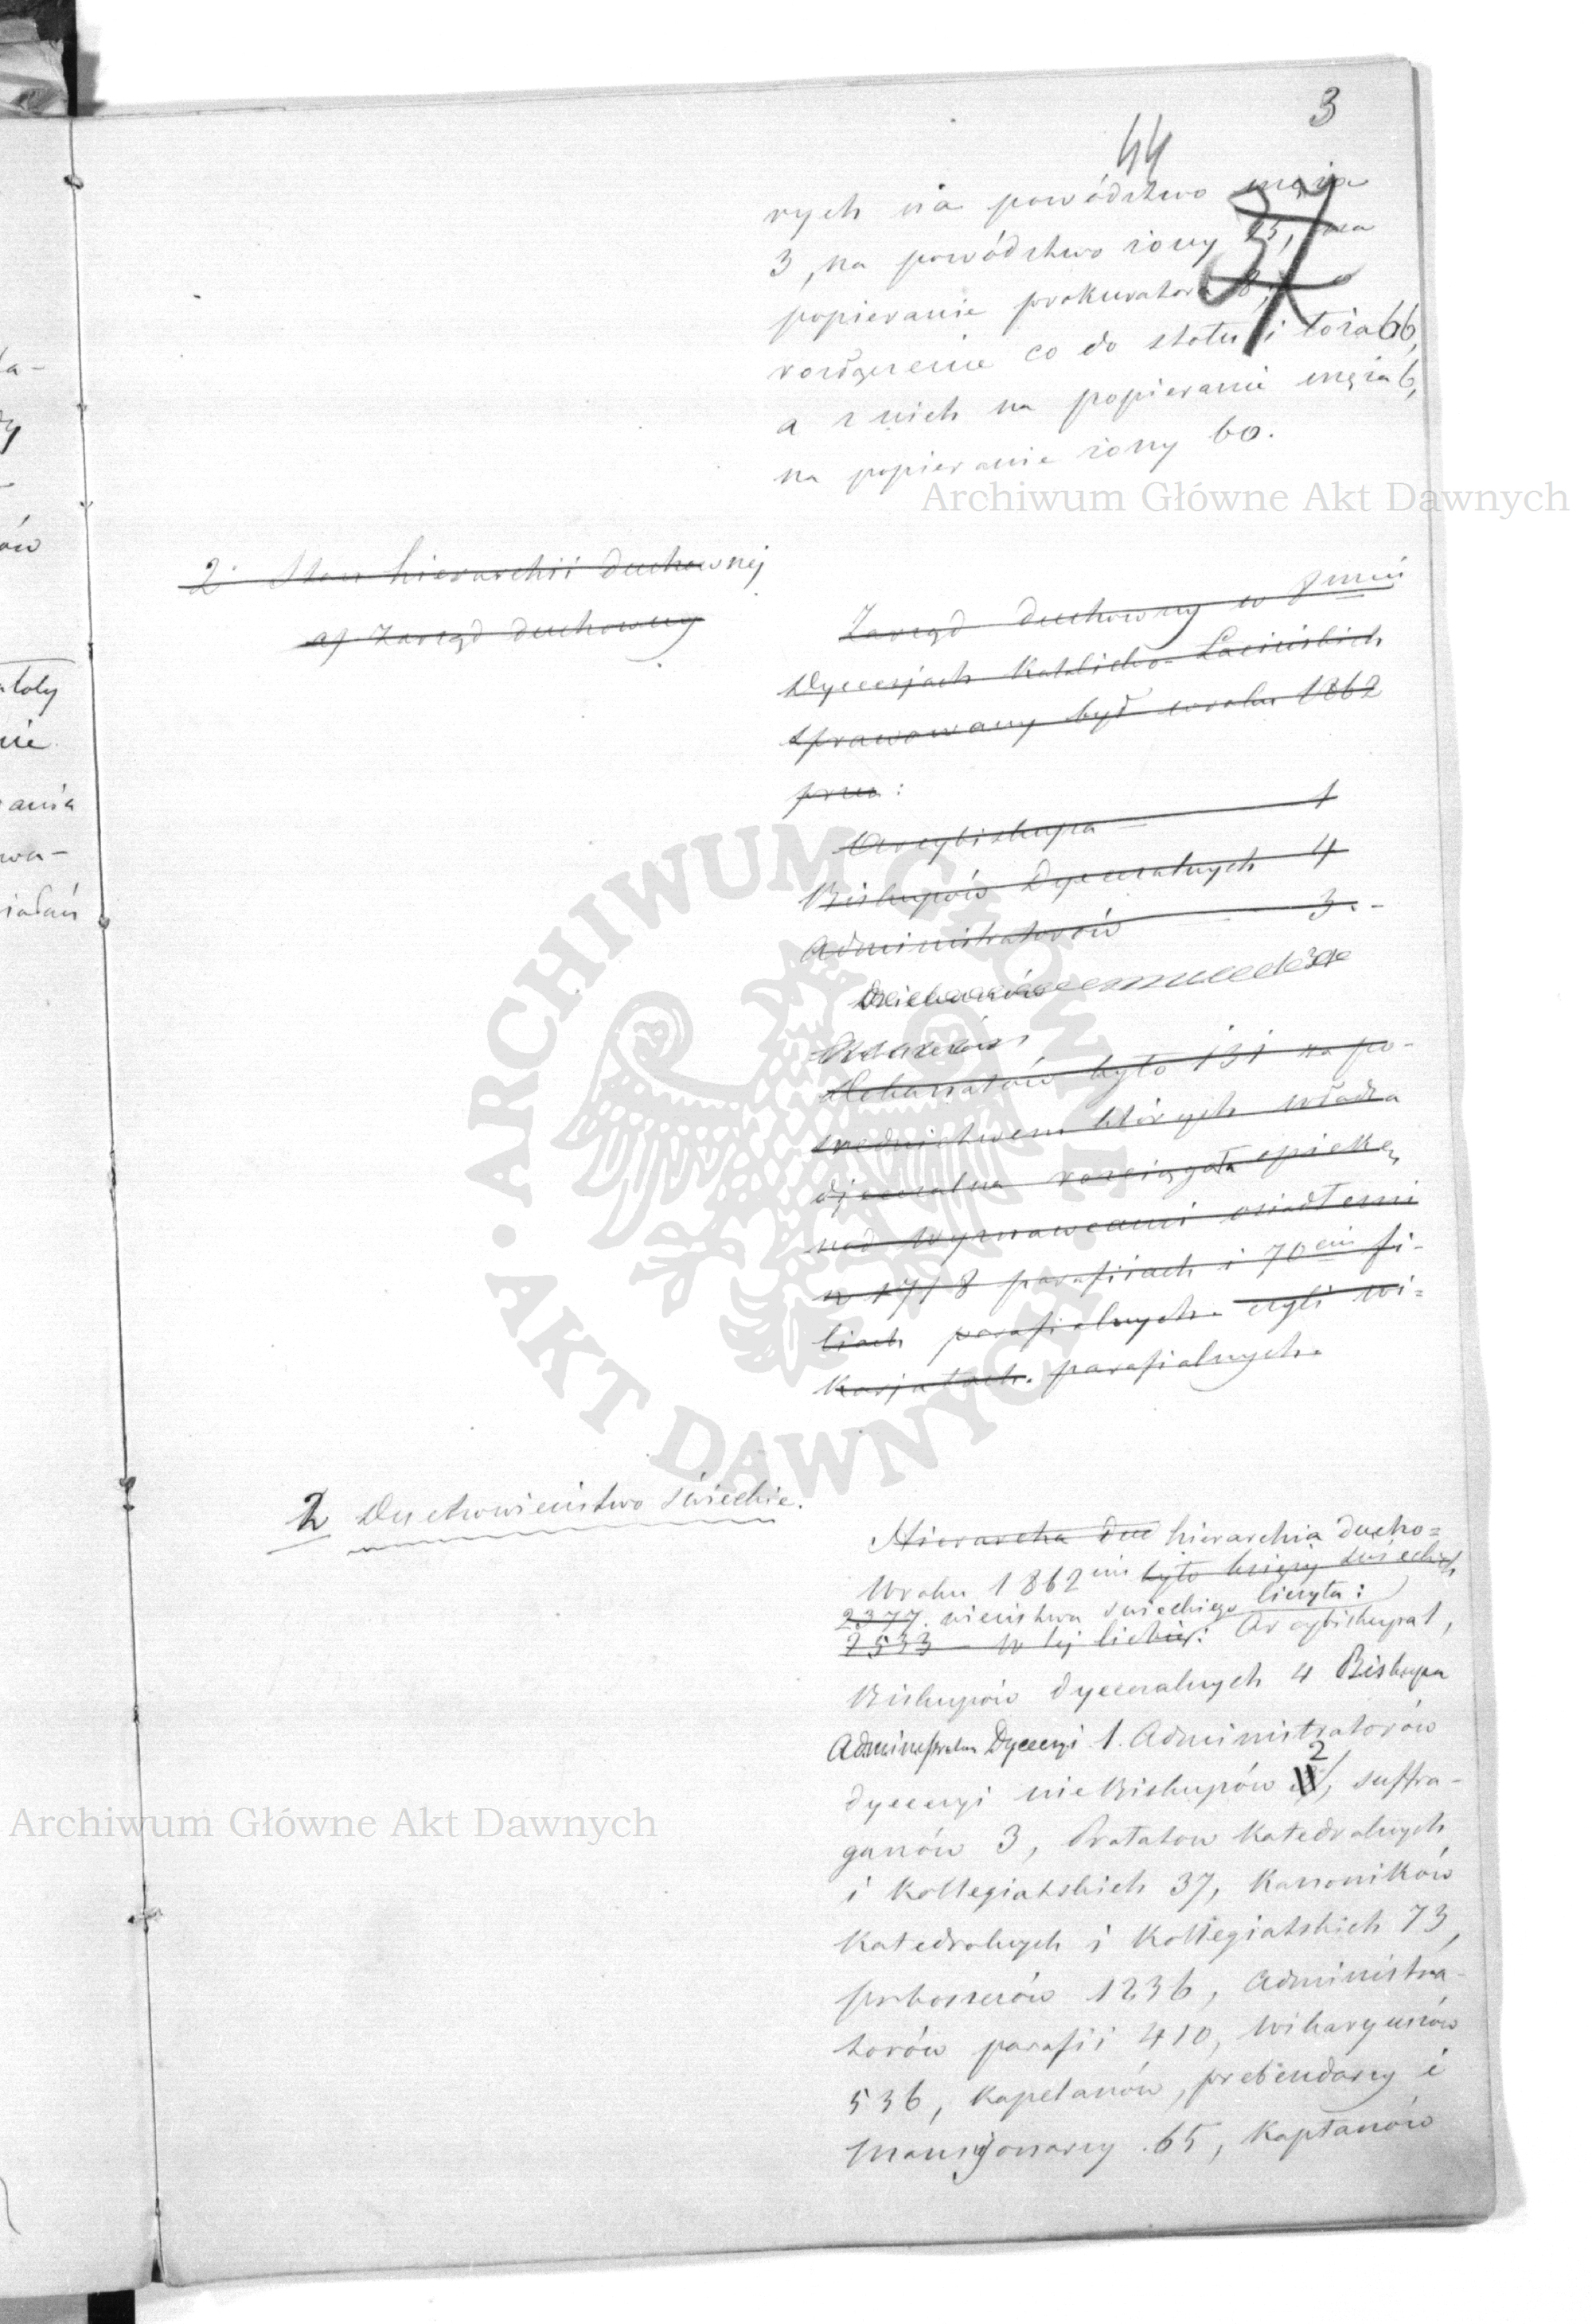 3
44
37
rych na powództwo męża
3, na powództwo żony 25, na
popieranie prokuratora 8,
rozłączenie co do stołu i łoża 66,
a z nich na popieranie męża 6,
na popieranie żony 60.
Archiwum Główne Akt Dawnych
2. Stan hierarchii duchownej
a) Zarząd duchowny
Zarząd duchowny w 8miu
Dyecezjach Katolicko-Łacińskich
sprawowany był w roku 1862
przez:
Arcybiskupa — 1
Biskupów Dyecezalnych 4
Administratorów 3.-
Dekanatów było 131 za po-
średnictwem których władza
djecezalna rozciągała opiekę
nad Wyznawcami osiadłemi
w 1718 parafiiach i 70ciu fi-
liach parafialnych. czyli wi-
karjatach. parafialnych.
ARCHIWUM GŁÓWNE AKT DAWNYCH
2 Duchowieństwo świeckie.
Hierarcha duc hierarchia ducho=
W roku 1862im było księży świeckich
2377. wieństwa świeckiego liczyła:
2533 — W tej liczbie: Arcybiskupa 1,
Biskupów dyecezalnych 4 Biskupa
Administratora Dyecezyi 1. Administratorów
dyecezyi nie Biskupów 2, suffra-
ganów 3, Prałatow Katedralnych
i Kollegiatskich 37, Kanoników
Katedralnych i Kollegiatskich 73,
proboszczów 1236, Administra-
torów parafii 410, Wikaryuszów
536, Kapelanów, prebendarzy i
Mansyonarzy 65, Kapłanów
Archiwum Główne Akt Dawnych